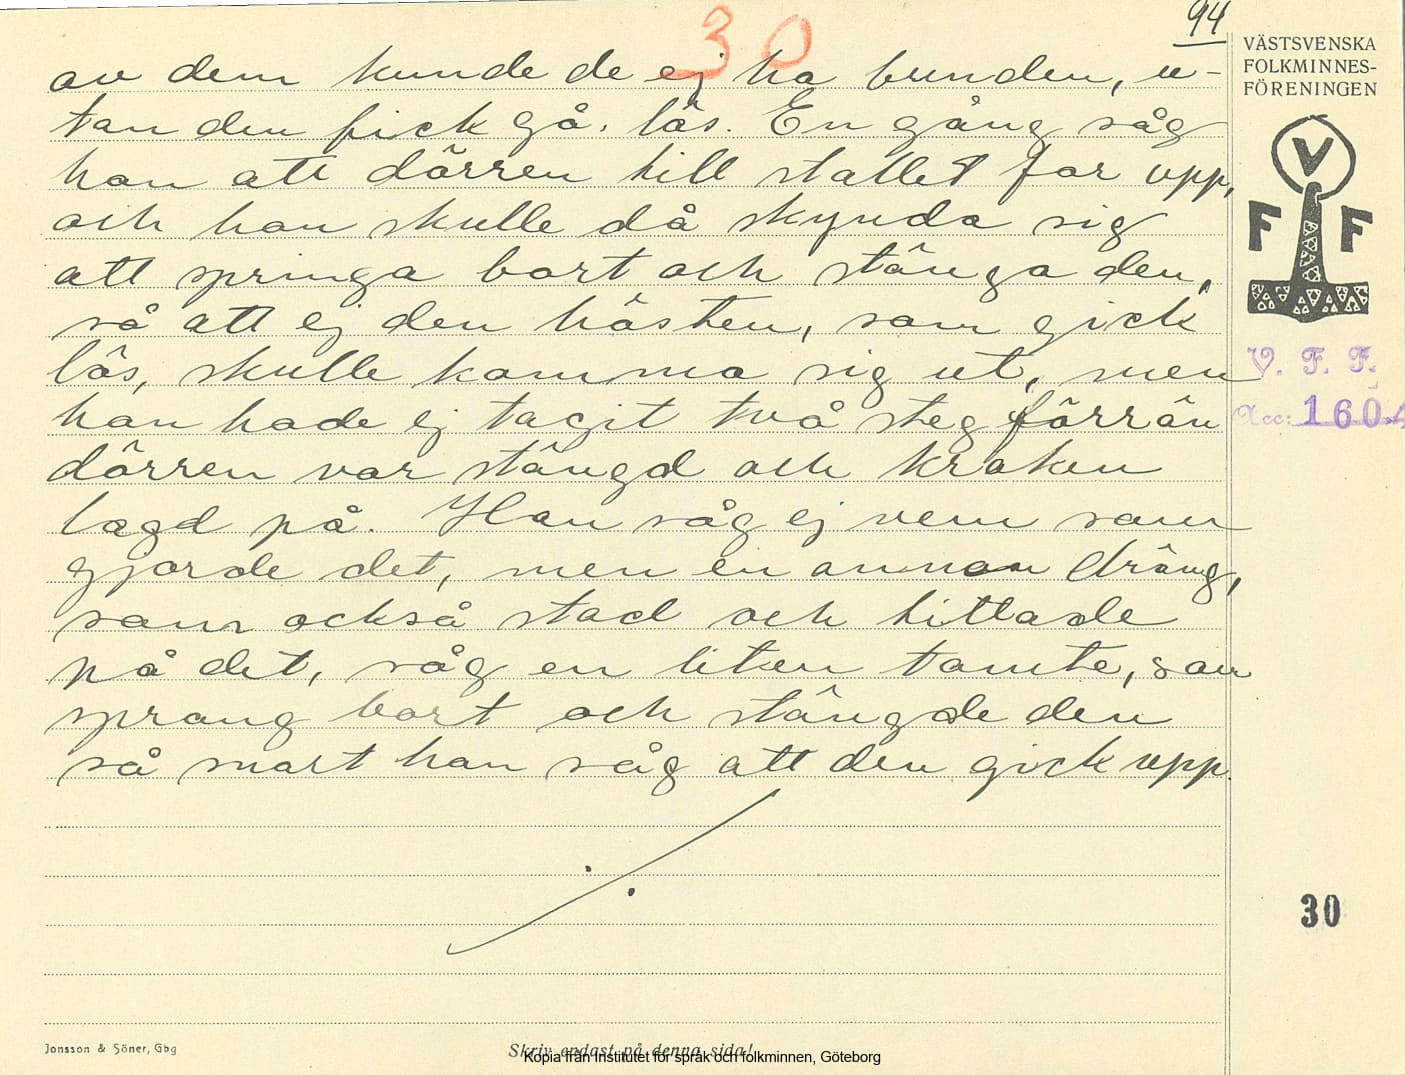 94
30
av dem kunde de ej ha bunden, u-
tan den fick gå lös. En gång såg
han att dörren till stallet for upp,
och han skulle då skynda sig
att springa bort och stänga den,
så att ej den hästen, som gick
lös, skulle komma sig ut, men
han hade ej tagit två steg förrän
dörren var stängd och kroken
lagd på. Han såg ej vem som
gjorde det, men en annan dräng,
som också stod och tittade
på det, såg en liten tomte, som
sprang bort och stängde den
så snart han såg att den gick upp.
VÄSTSVENSKA
FOLKMINNES-
FÖRENINGEN
V
F F
V. F. F.
Acc: 1604
30
Jonsson & Söner, Gbg
Skriv endast på denna sida!
Kopia från Institutet för språk och folkminnen, Göteborg